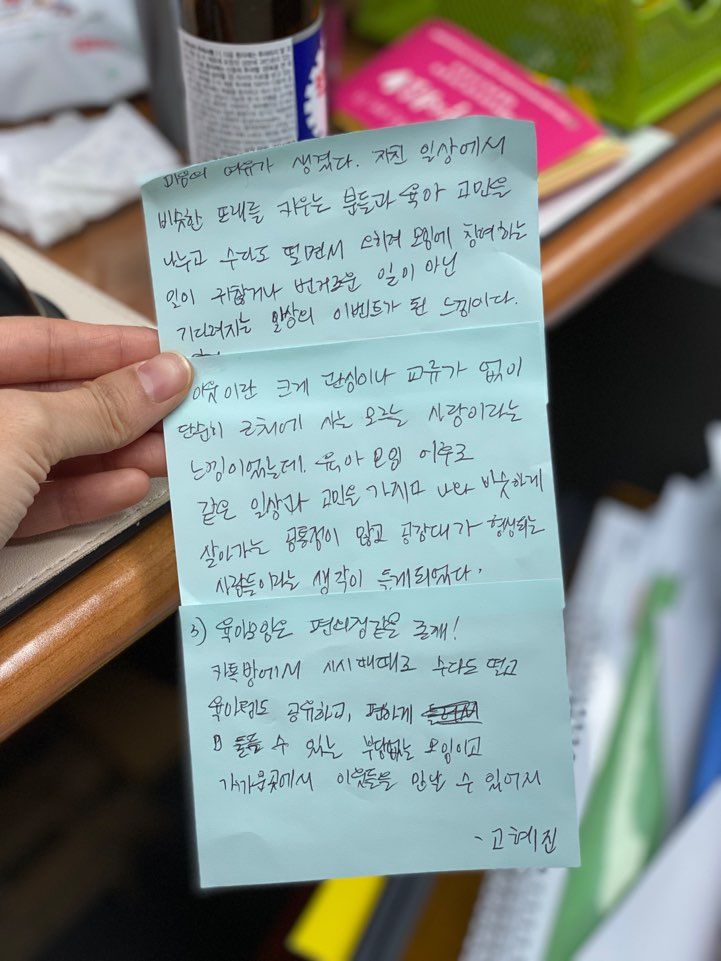 마음의 여유가 생겼다. 지친 일상에서
비슷한 또래를 키우는 분들과 육아 고민을
나누고 수다도 떨면서 모임에 참여하는
일이 귀찮거나 번거로운 일이 아닌
기다려지는 일상의 이벤트가 된 느낌이다.
이웃이란 크게 관심이나 교류가 없이
단순히 근처에 사는 모르는 사람이라는
느낌이었는데. 육아 모임 이후로
같은 일상과 고민을 가지고 나와 비슷하게
살아가는 공통점이 많고 공감대가 형성되는
사람들이라는 생각이 들게되었다.
3) 육아모임은 편의점같은 존재!
카톡방에서 시시때때로 수다도 떨고
육아템도 공유하고, 편하게
수 있는 부담없는 모임이고
가까운곳에서 이웃들을 만날 수 있어서
- 고혜진